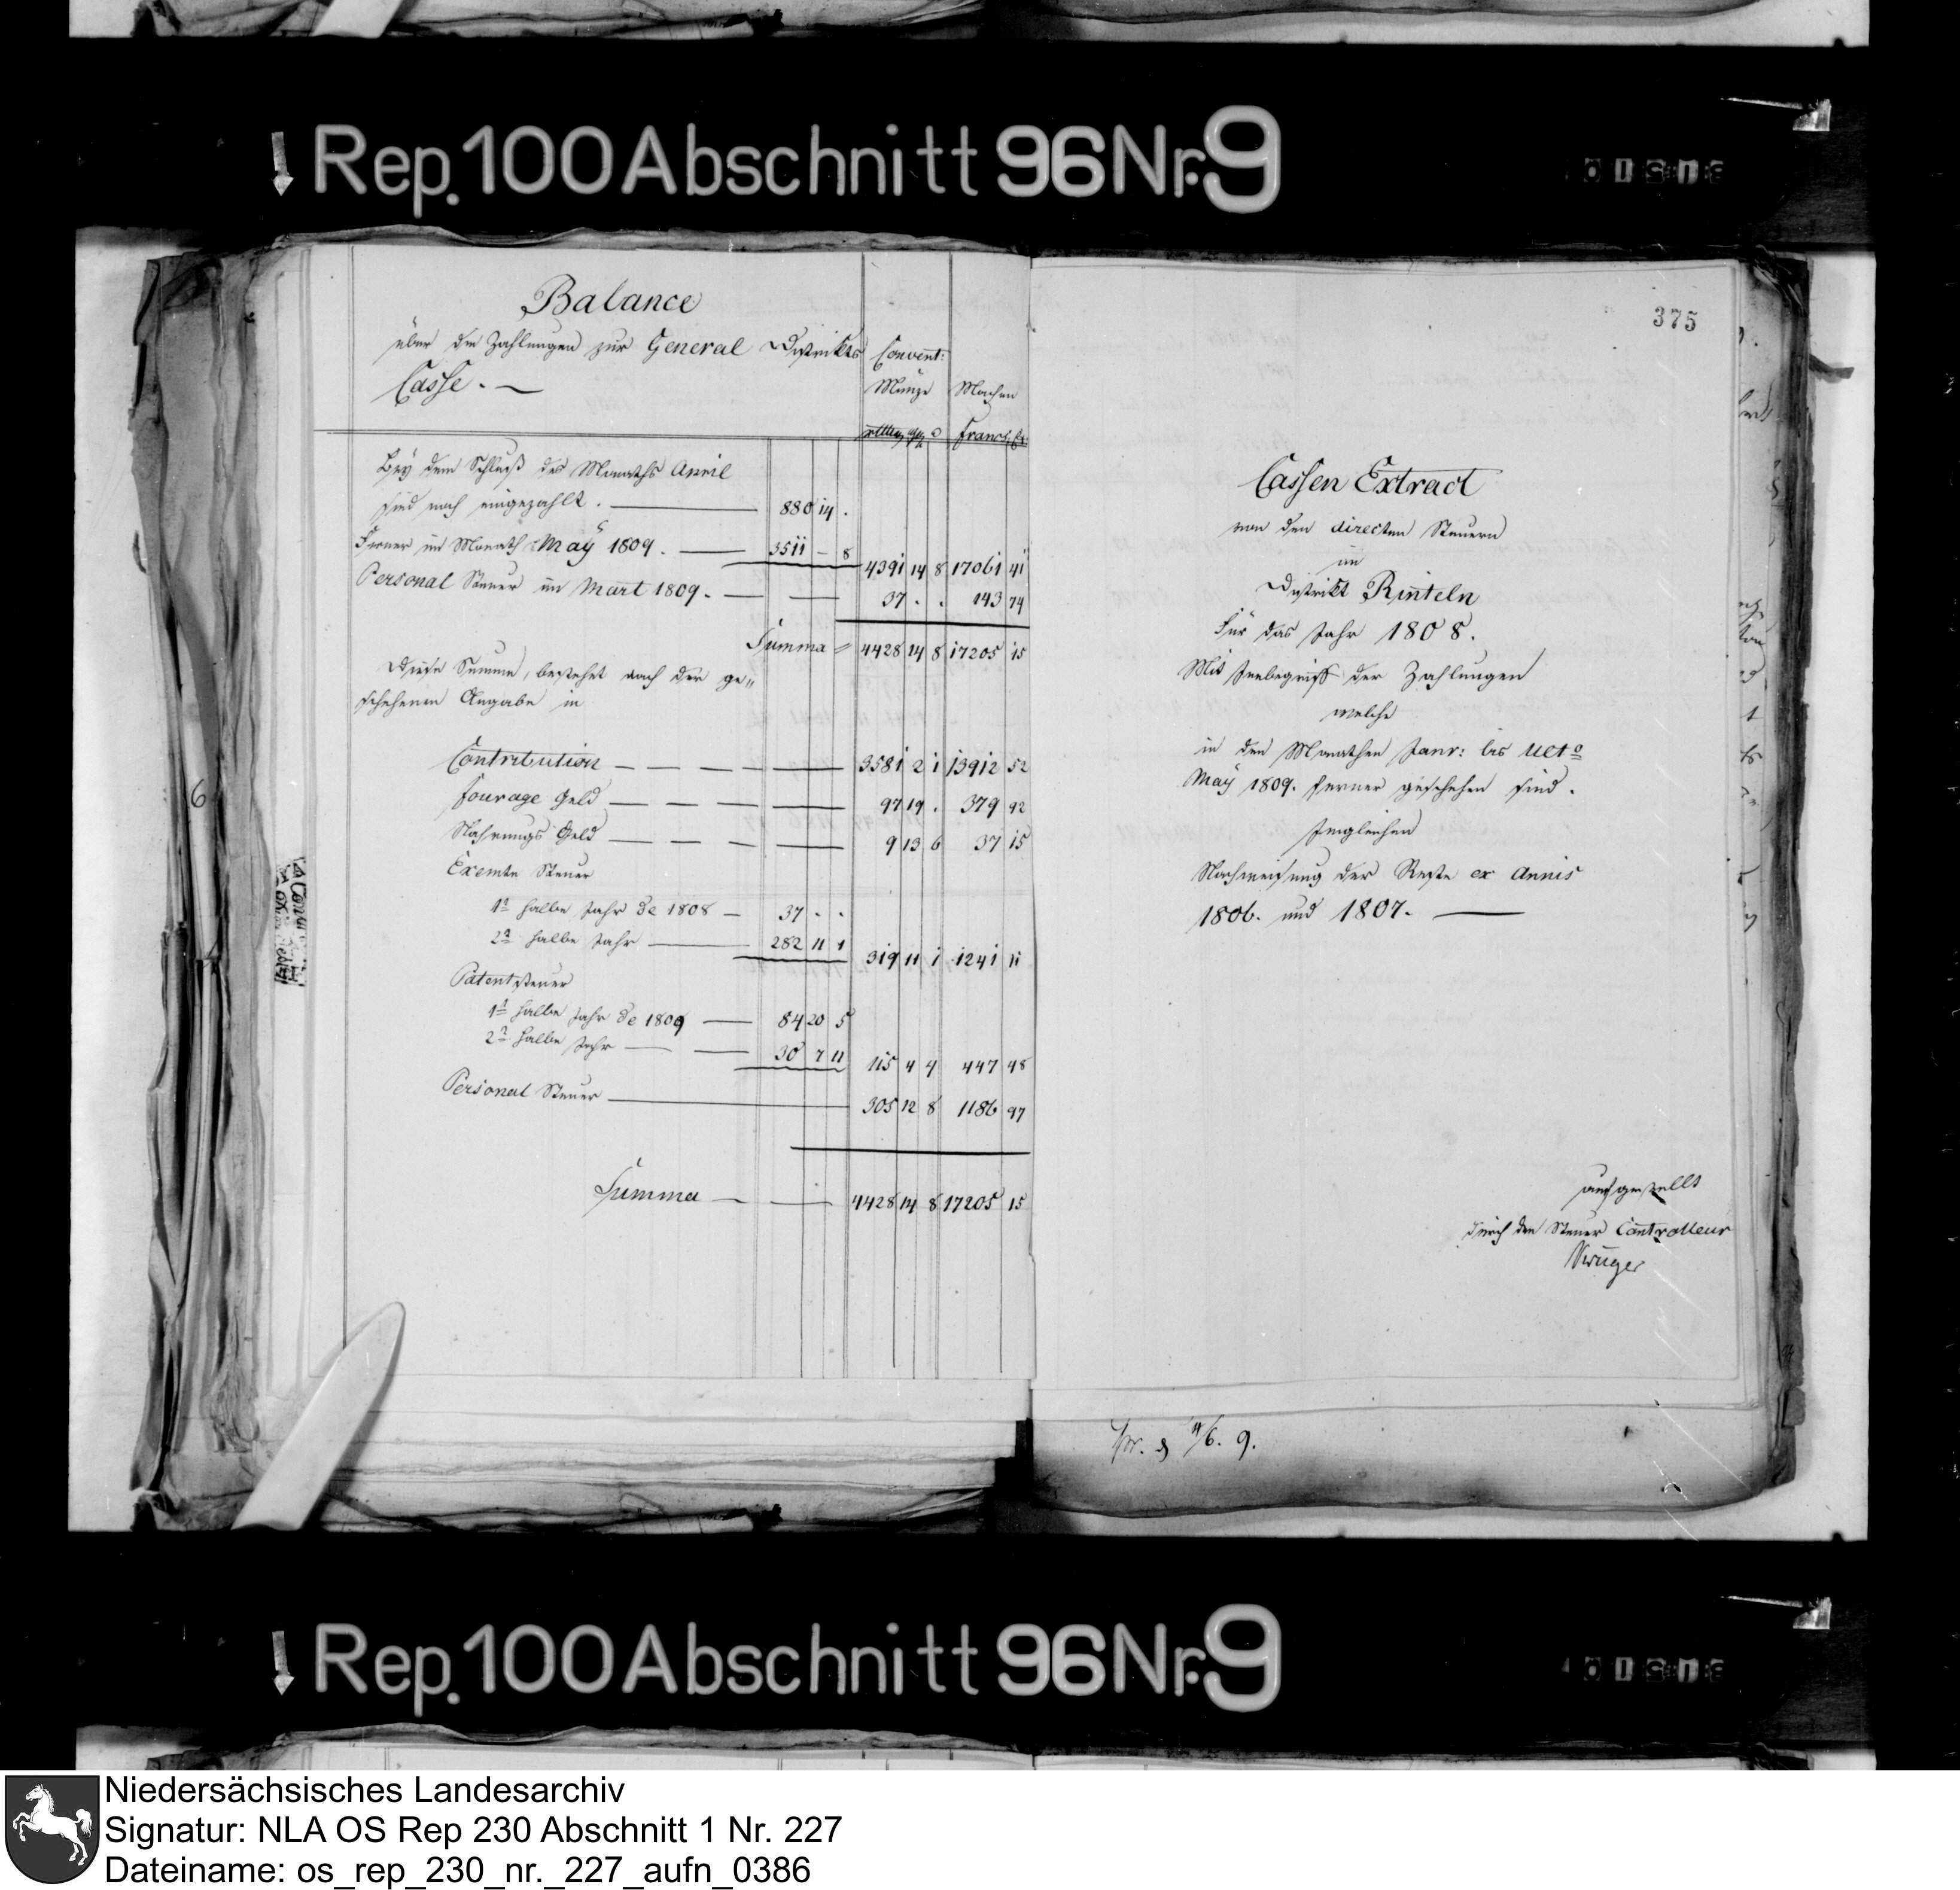 Rep. 100 Abschnitt 96 Nr. 9
Balance
über die Zahlungen zur General Distrikts
Casse. —
Convent: Münze
Machen
rthlr ggr d
Francs Ct
Bey dem Schluß des Monaths April
sind noch eingezahlt. — 880 14 .
Ferner im Monath May 1809. — 3511 – 8 4391 14 8 17061 41
Personal Steuer im Mart 1809. — 37 . . 143 74
Summa = 4428 14 8 17205 15
Diese Summe, bestehet nach der ge„
schehenen Angabe in
Contribution — 3581 2 1 13912 52
Fourage Geld — 97 19 . 379 92
Nahrungs Geld — 9 13 6 37 15
Exemte Steuer
1te halbe Jahr de 1808 — 37 . .
2te halbe Jahr — 282 11 1 319 11 1 1241 11
Patentsteuer
1te halbe Jahr de 1809 — 84 20 5
2te halbe Jahr — 30 7 11 115 4 4 447 48
Personal Steuer — 305 12 8 1186 97
Summa — 4428 14 8 17205 15
375
Cassen Extract
von den directen Steuern
im
Distrikt Rinteln
Für das Jahr 1808.
Mit Innbegriff der Zahlungen
welche
in den Monathen Janr: bis Ulto
May 1809. ferner geschehen sind.
Imgleichen
Nachweisung der Reste ex Annis
1806. und 1807. —
aufgestellt
durch den Steuer Controlleur
Krüger
6. 9.
6
Rep. 100 Abschnitt 96 Nr. 9
Niedersächsisches Landesarchiv
Signatur: NLA OS Rep 230 Abschnitt 1 Nr. 227
Dateiname: os_rep_230_nr._227_aufn_0386